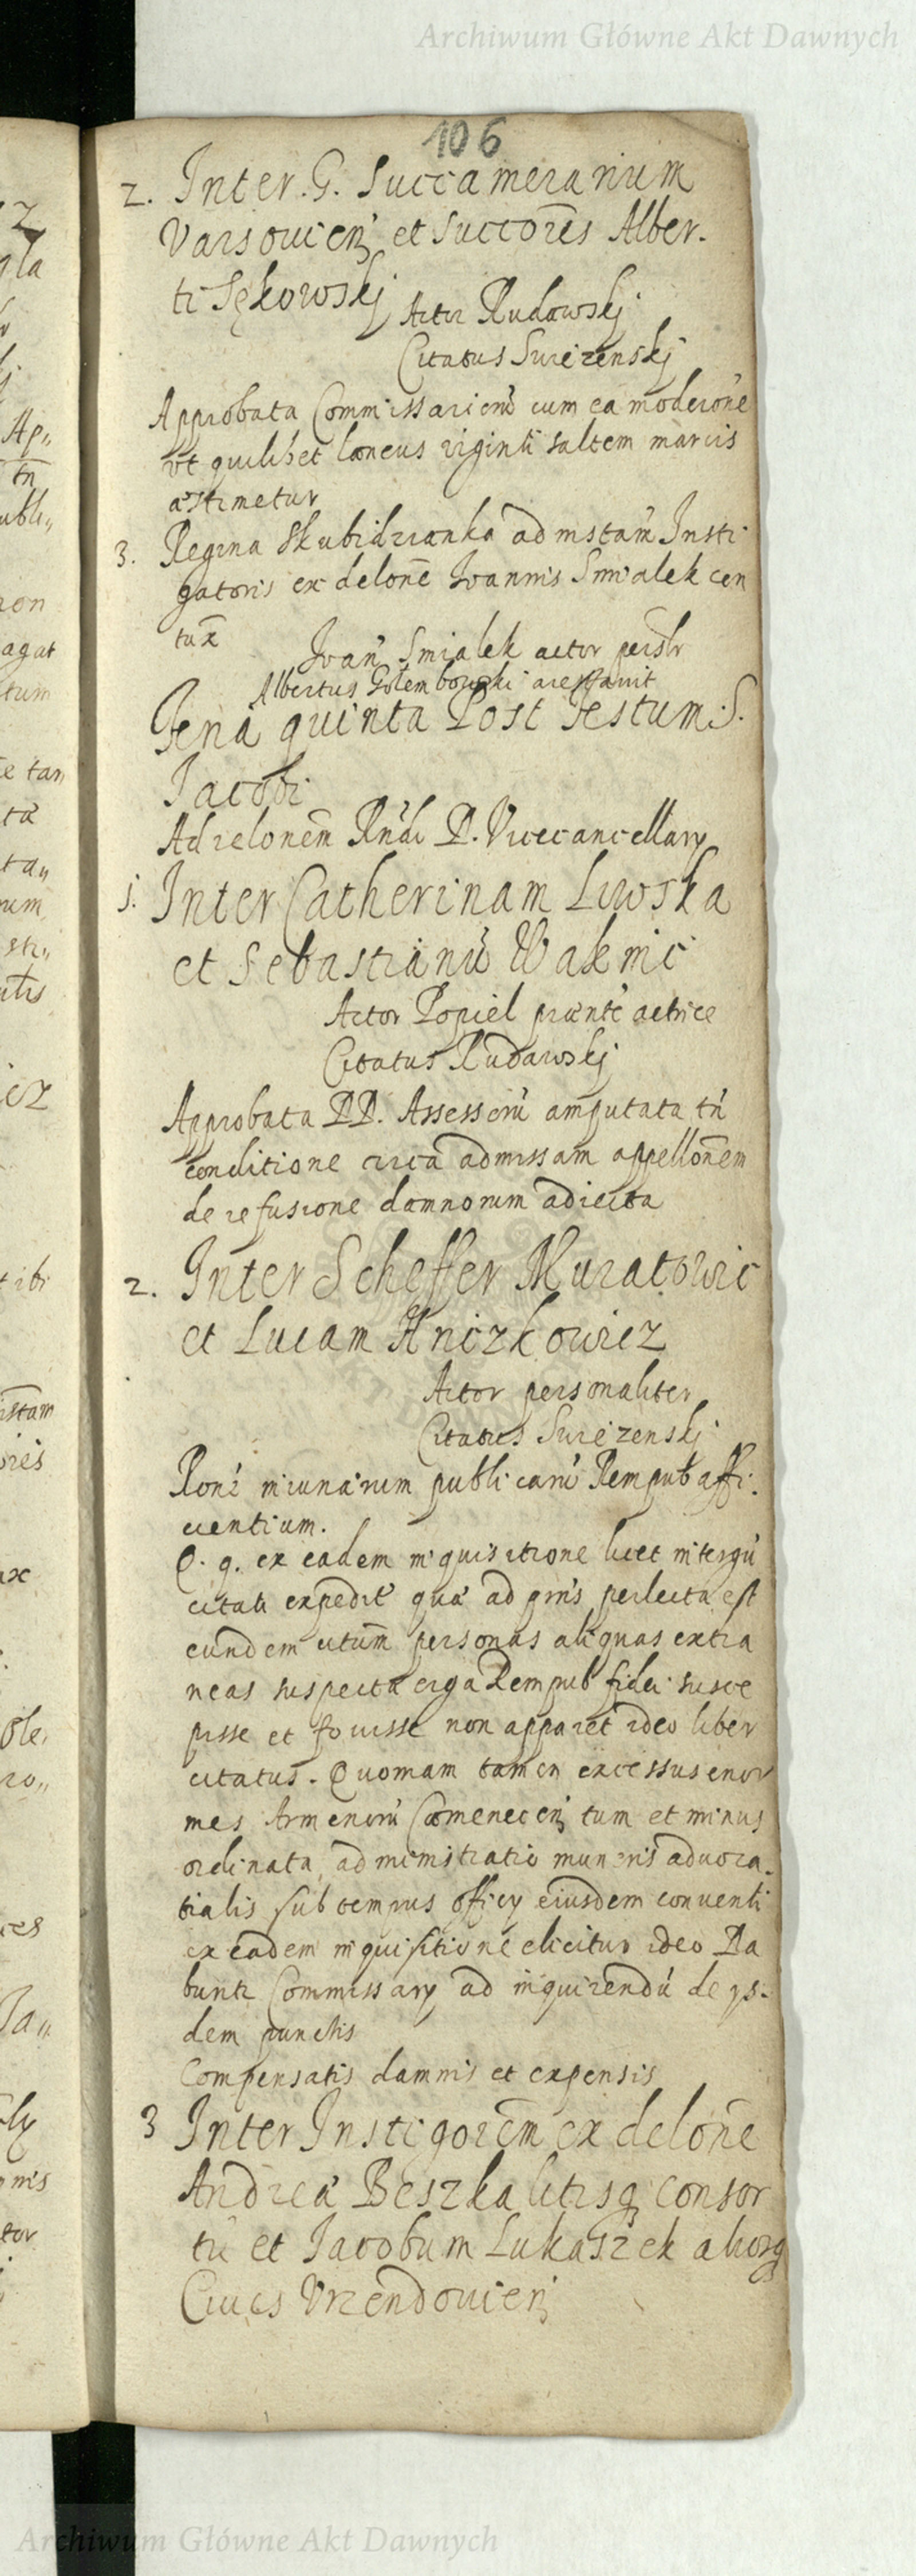 Archiwum Główne Akt Dawnych
106
2. Inter. G. Succamerarium
Varsovien et Succores Alber-
ti Sękowskj
Actor Rudowskj
Citatus Swiezenskj
Approbata Commissarienŭ cum ea moderōne
ut quilibet laneus viginti saltem marcis
æstimetur
3. Regina Skubidzianka ad instām Insti
gatoris ex delōne Ioannis Smialek cen
tax
Ioan Smialek actor persłr
Albertus Golembowski arestavit
Feria quinta Post Festum S.
Iacobi
Ad relonem Rndi D. Vicecancellary
1. Inter Catherinam Liwska
et Sebastianŭ Wakmic
Actor Popiel præntē actrice
Citatus Rudawskj
Approbata DD. Assesserŭ amputata tn
conditione circa admissam appellōnem
de refusione damnorum adiecta
2. Inter Scheffer Muratowic
et Lucam Hniczkowicz
Actor personaliter
Citatus Swiezenskj
publicarŭ Rempub affi-
cientium.
Q. q. ex eadem inquisitione licet in tergŭ
citati expedit qua ad prns perlecta est
eundem citum personas aliquas extra
neas suspecta erga Rempub fidei susce
pisse et fovisse non apparet ideo liber
citatus. Quoniam tamen excessus enor
mes Armenorŭ Camenecen tum et minus
ordinata administratio muneris advoca-
tialis sub tempus officy eiusdem conventi
ex eadem inquisitione elicitur ideo Da
buntr Commissary ad inquirendŭ de ys-
dem punctis
Compensatis damnis et expensis
3 Inter Instigorēm ex delōne
Andrea Beszka litisq consor
tŭ et Iacobum Lukaszek aliosq
Cives Vrzendovien
Archiwum Główne Akt Dawnych